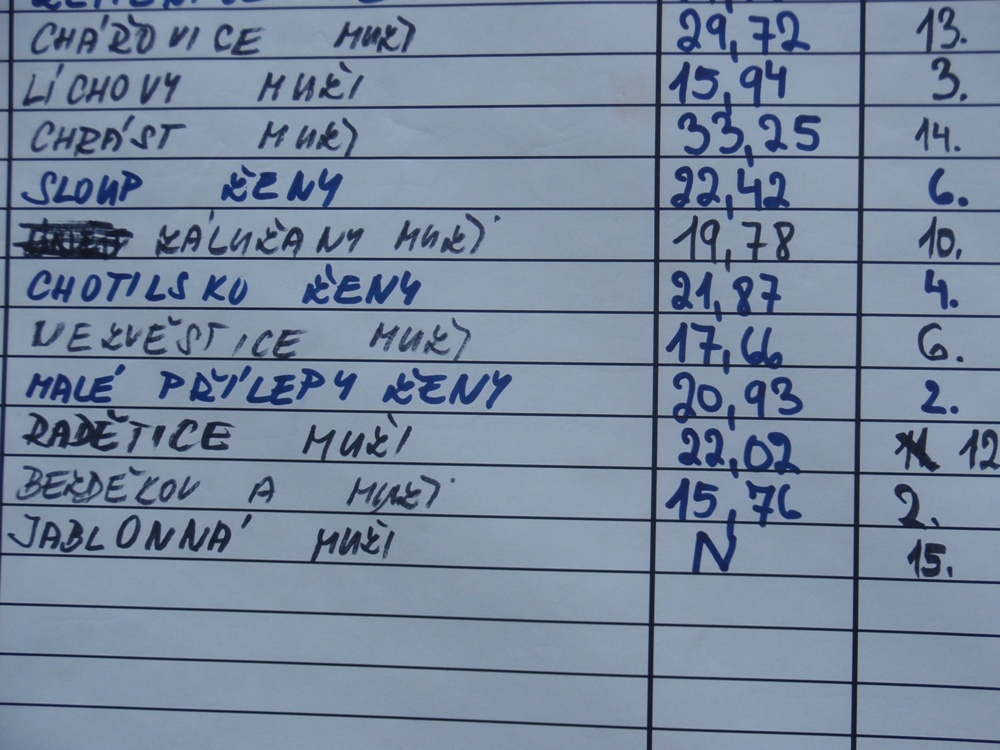 CHÁŘOVICE MUŽI 29,72 13.
LÍCHOVY MUŽI 15,94 3.
CHRÁST MUŽI 33,25 14.
SLOUP ŽENY 22,42 6.
ZALUŽANY MUŽI 19,78 10.
CHOTILSKO ŽENY 21,87 4.
NEZVĚSTICE MUŽI 17,66 6.
MALÉ PŘÍLEPY ŽENY 20,93 2.
RADĚTICE MUŽI 22,02 12
BEZDĚKOV A MUŽI 15,76 2.
JABLONNÁ MUŽI N 15.